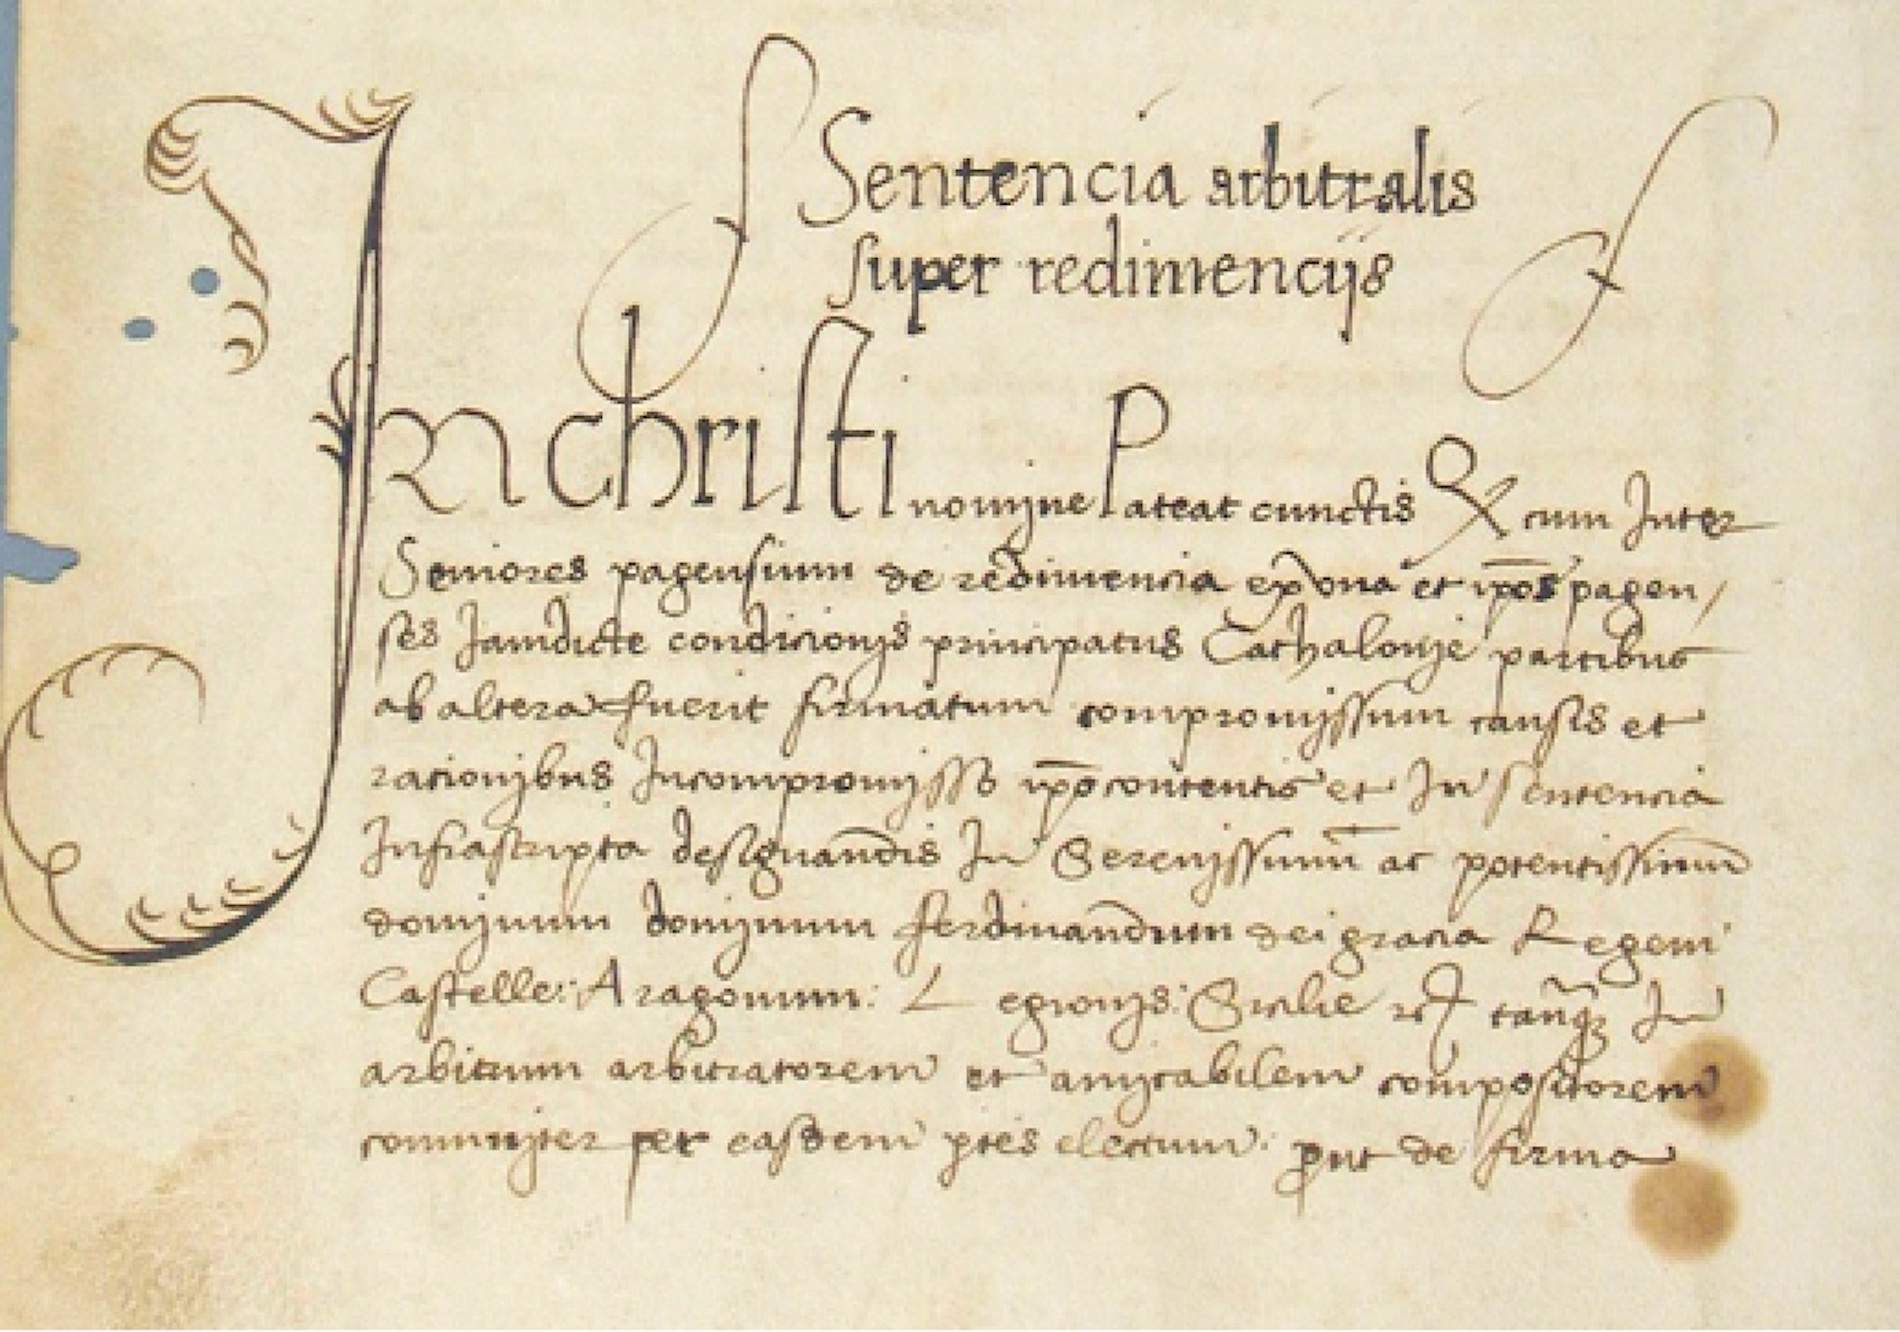 Sentencia arbitralis
super redimencijs
In christi nomjne Pateat cunctis Qx cum Inter
Seniores pagensium de redimencia ex vna et ipos pagen/
ses Jamdicte condicionjs principatus Cathalonje partibus
ab altera fuerit firmatum compromjssum causis et
racionjbus Incompromjsso ipo contentis et In sentencia
Infrascripta designandis In Serenjssimum ac potentissimum
domjnum domjnum ferdinandum dei gracia Regem
Castelle: Aragonum: Legionjs: Sicilie tanq In
arbitrum arbitratorem et amjcabilem compositorem
comunjter per easdem ptes electum: put de firma